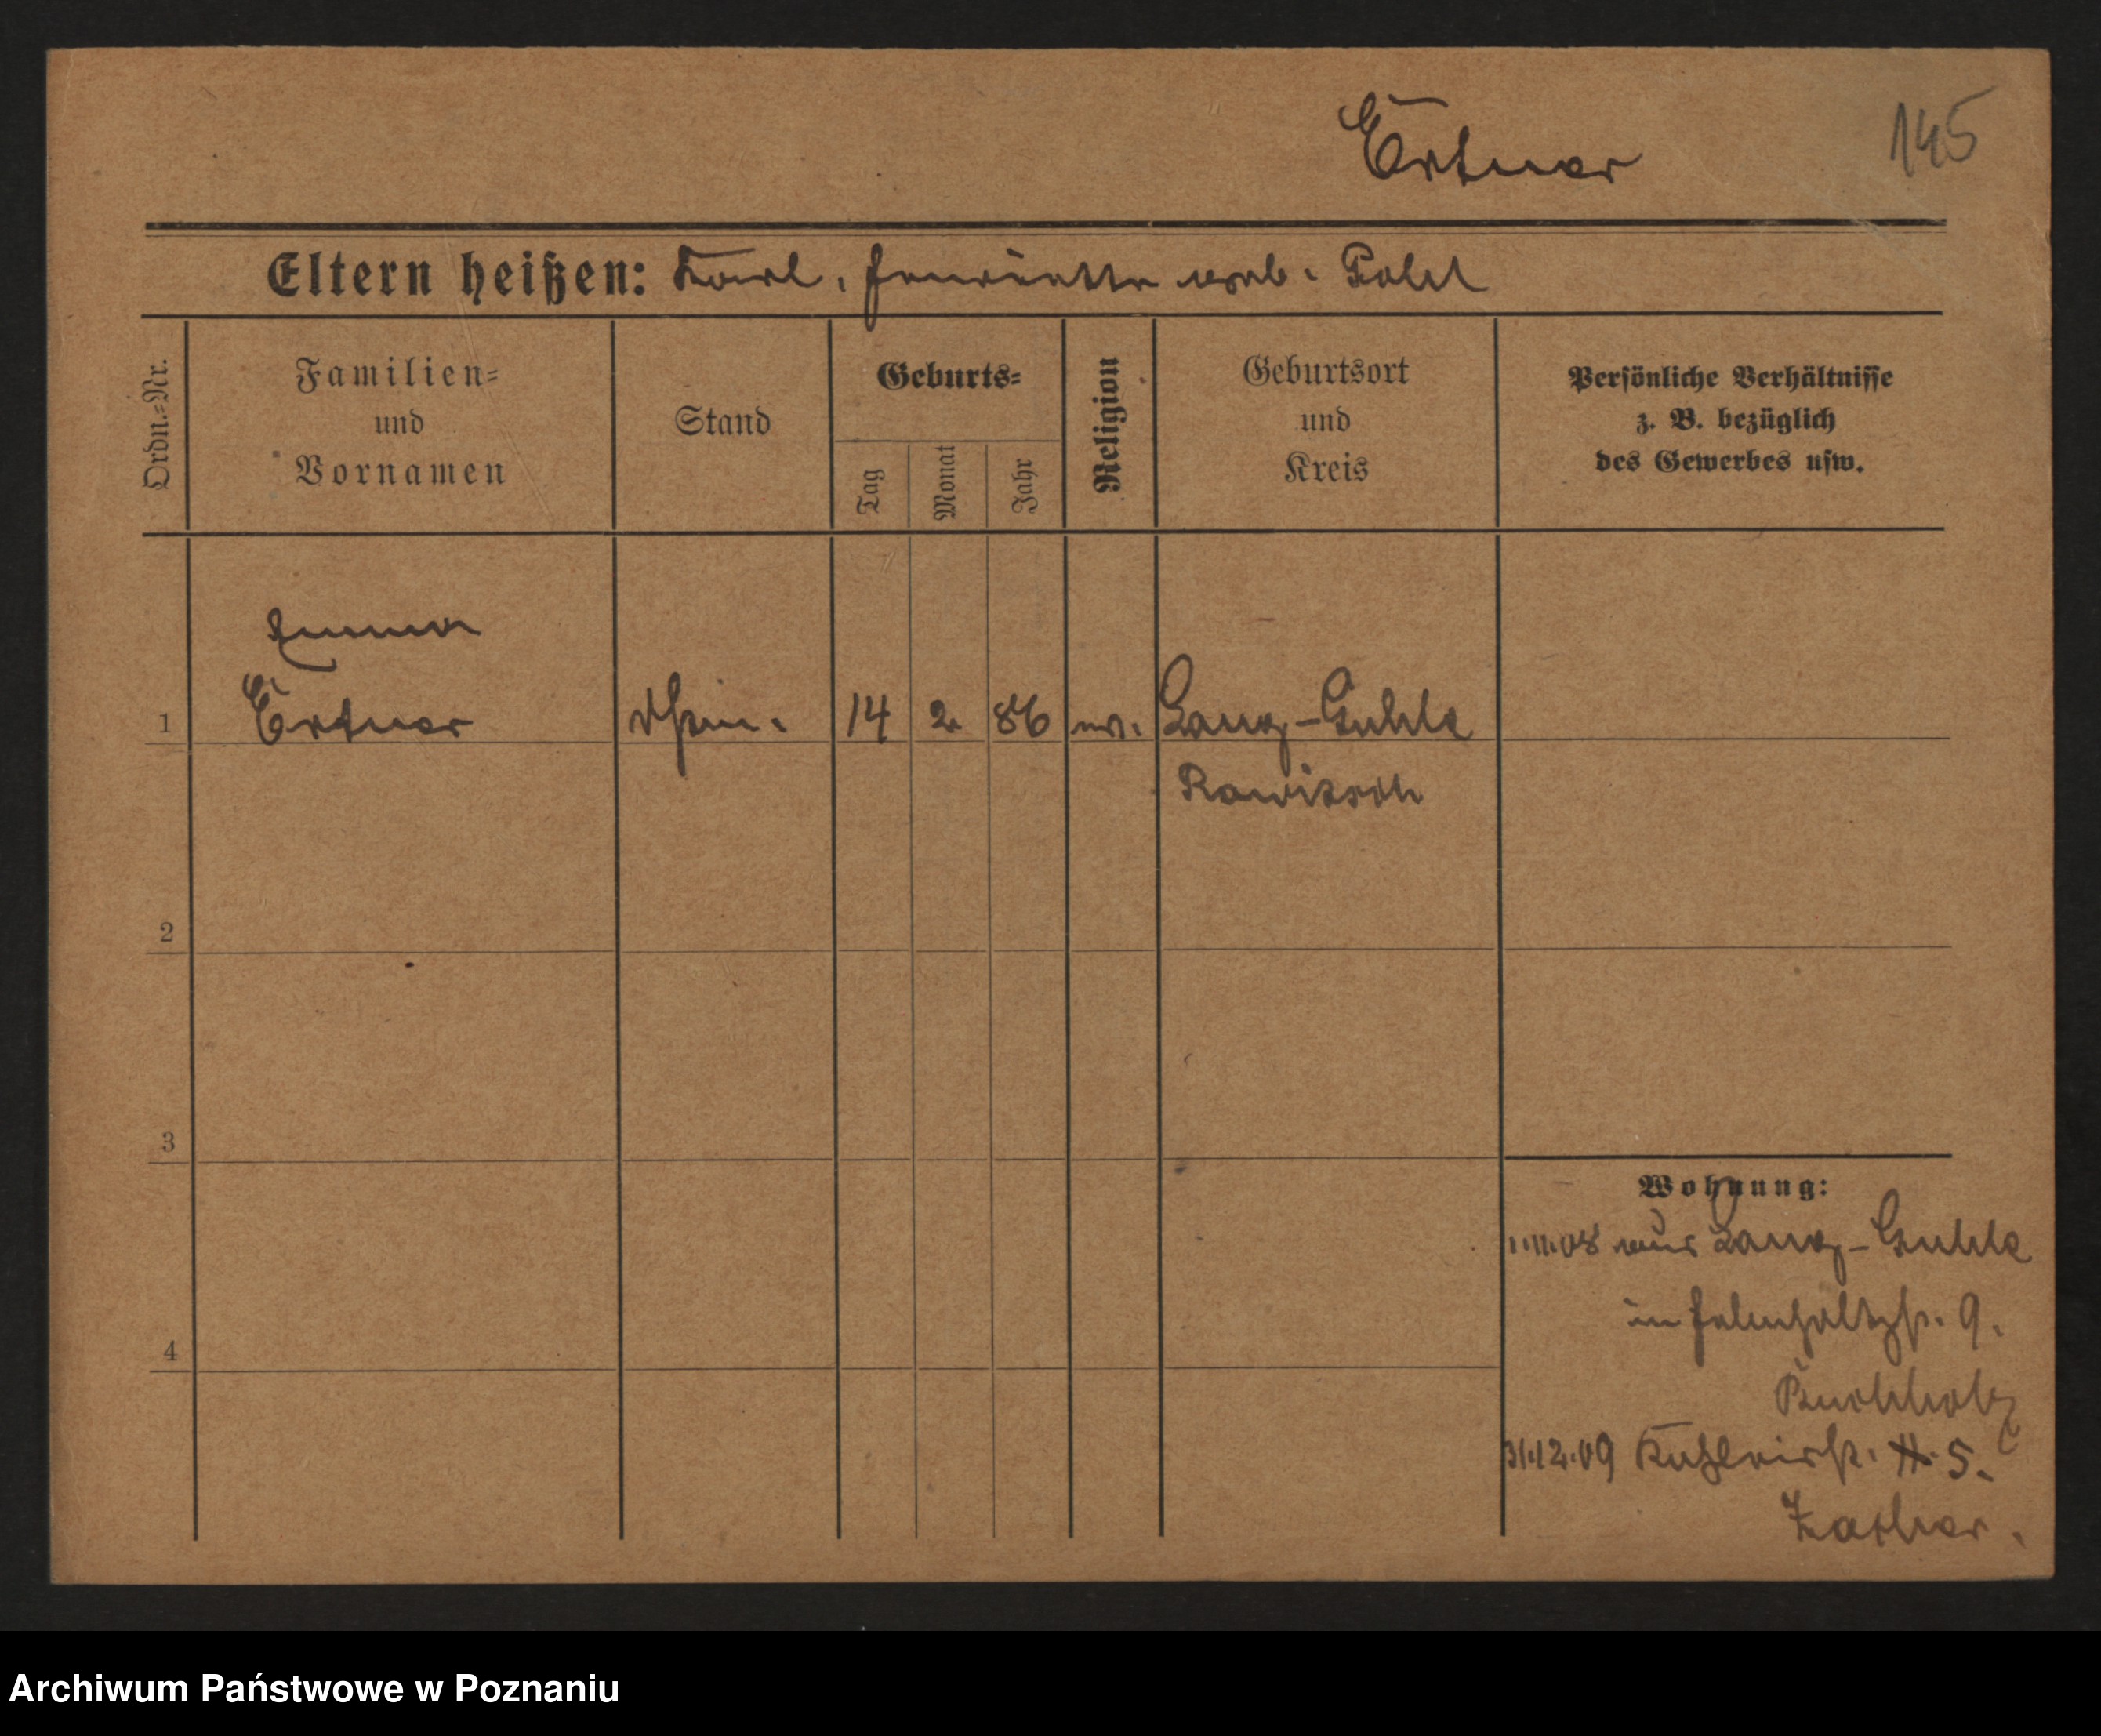 Ertner 145
Eltern heißen: Karl, Henriette geb. Pohl
Ordn.=Nr.
Familien=
und
Vornamen
Stand
Geburts=
Tag
Monat
Jahr
Religion
Geburtsort
und
Kreis
Persönliche Verhältnisse
z. B. bezüglich
des Gewerbes usw.
Emma
1 Ertner 14 2 86 ev. Lang-Guhle
Rawitsch
2
3
4
Wohnung:
1.11.08 aus Lang-Guhle
in 9.
Buchholz
31.12.09 5.
Archiwum Państwowe w Poznaniu